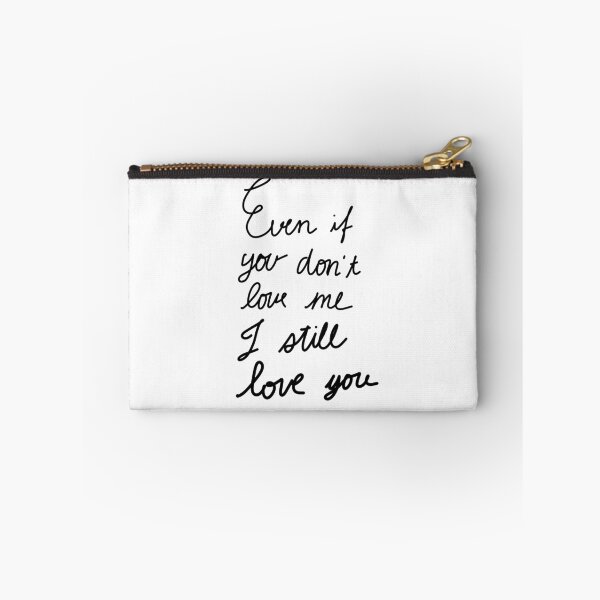 Even if
you don't
love me
I still
love you